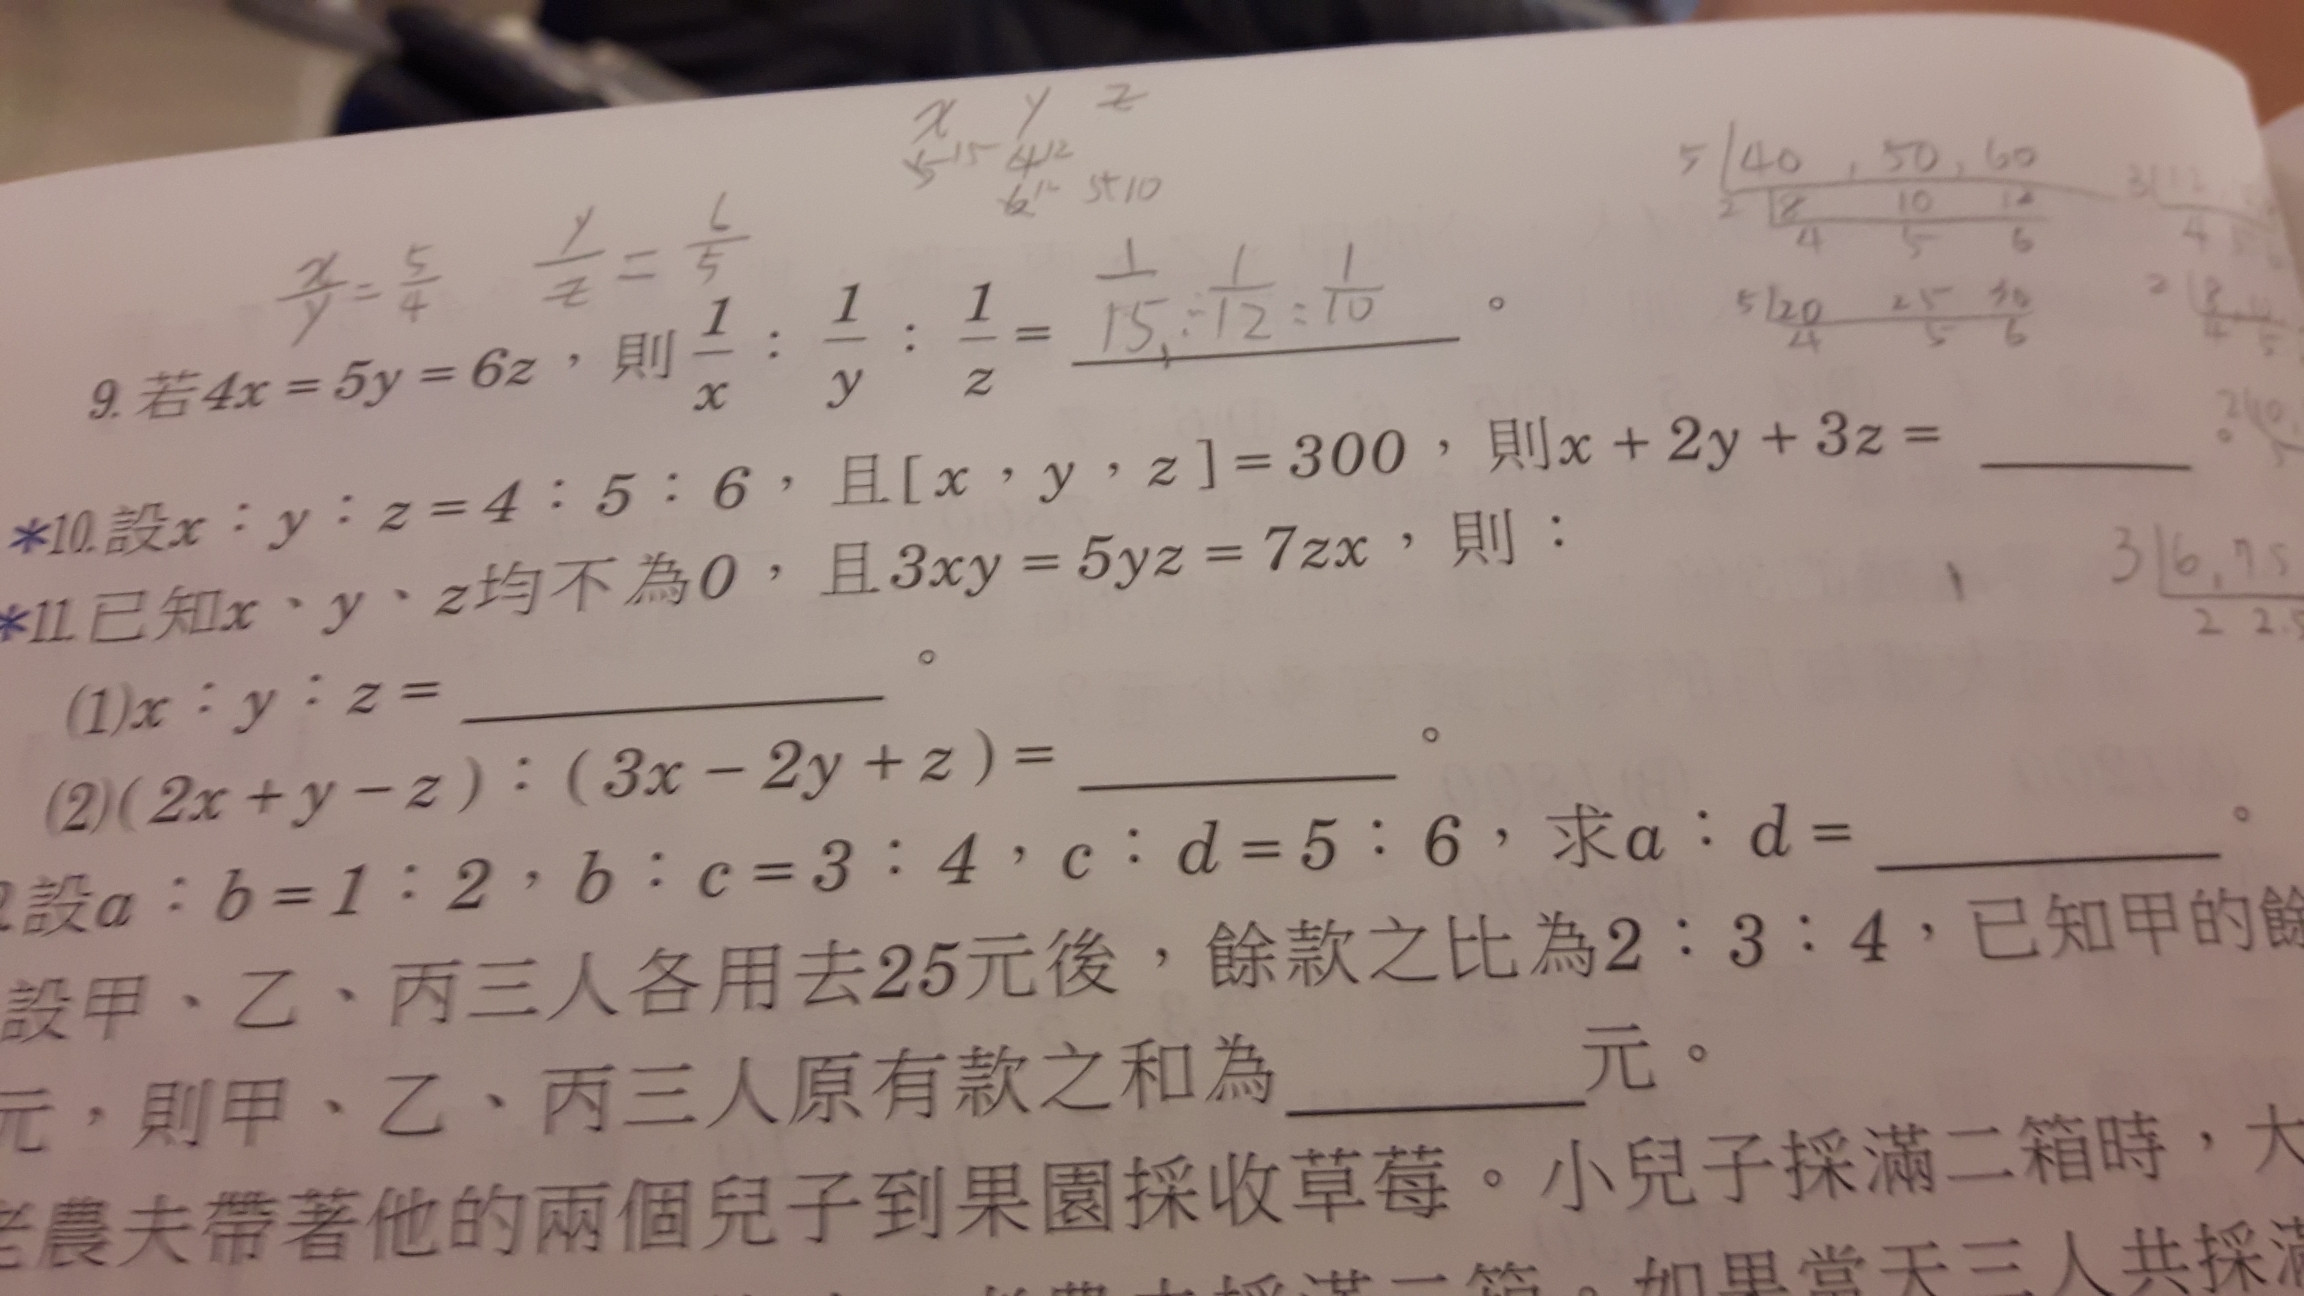 x y z
5 15 4 12
6 12 5 10
5 40 , 50 , 60
2 8 10 12
4 5 6
x/y = 5/4 y/z = 6/5
5 20 25 30
4 5 6
9. 若4x = 5y = 6z，則 1/x : 1/y : 1/z = 1/15 : 1/12 : 1/10 。
*10. 設x：y：z = 4：5：6，且[x，y，z] = 300，則x + 2y + 3z = 。
*11. 已知x、y、z均不為0，且3xy = 5yz = 7zx，則：
3 6, 7.5
2 2.5
(1)x：y：z = 。
(2)(2x + y − z)：(3x − 2y + z) = 。
設a：b = 1：2，b：c = 3：4，c：d = 5：6，求a：d = 。
設甲、乙、丙三人各用去25元後，餘款之比為2：3：4，已知甲的餘
元，則甲、乙、丙三人原有款之和為 元。
老農夫帶著他的兩個兒子到果園採收草莓。小兒子採滿二箱時，大
如果當天三人共採滿